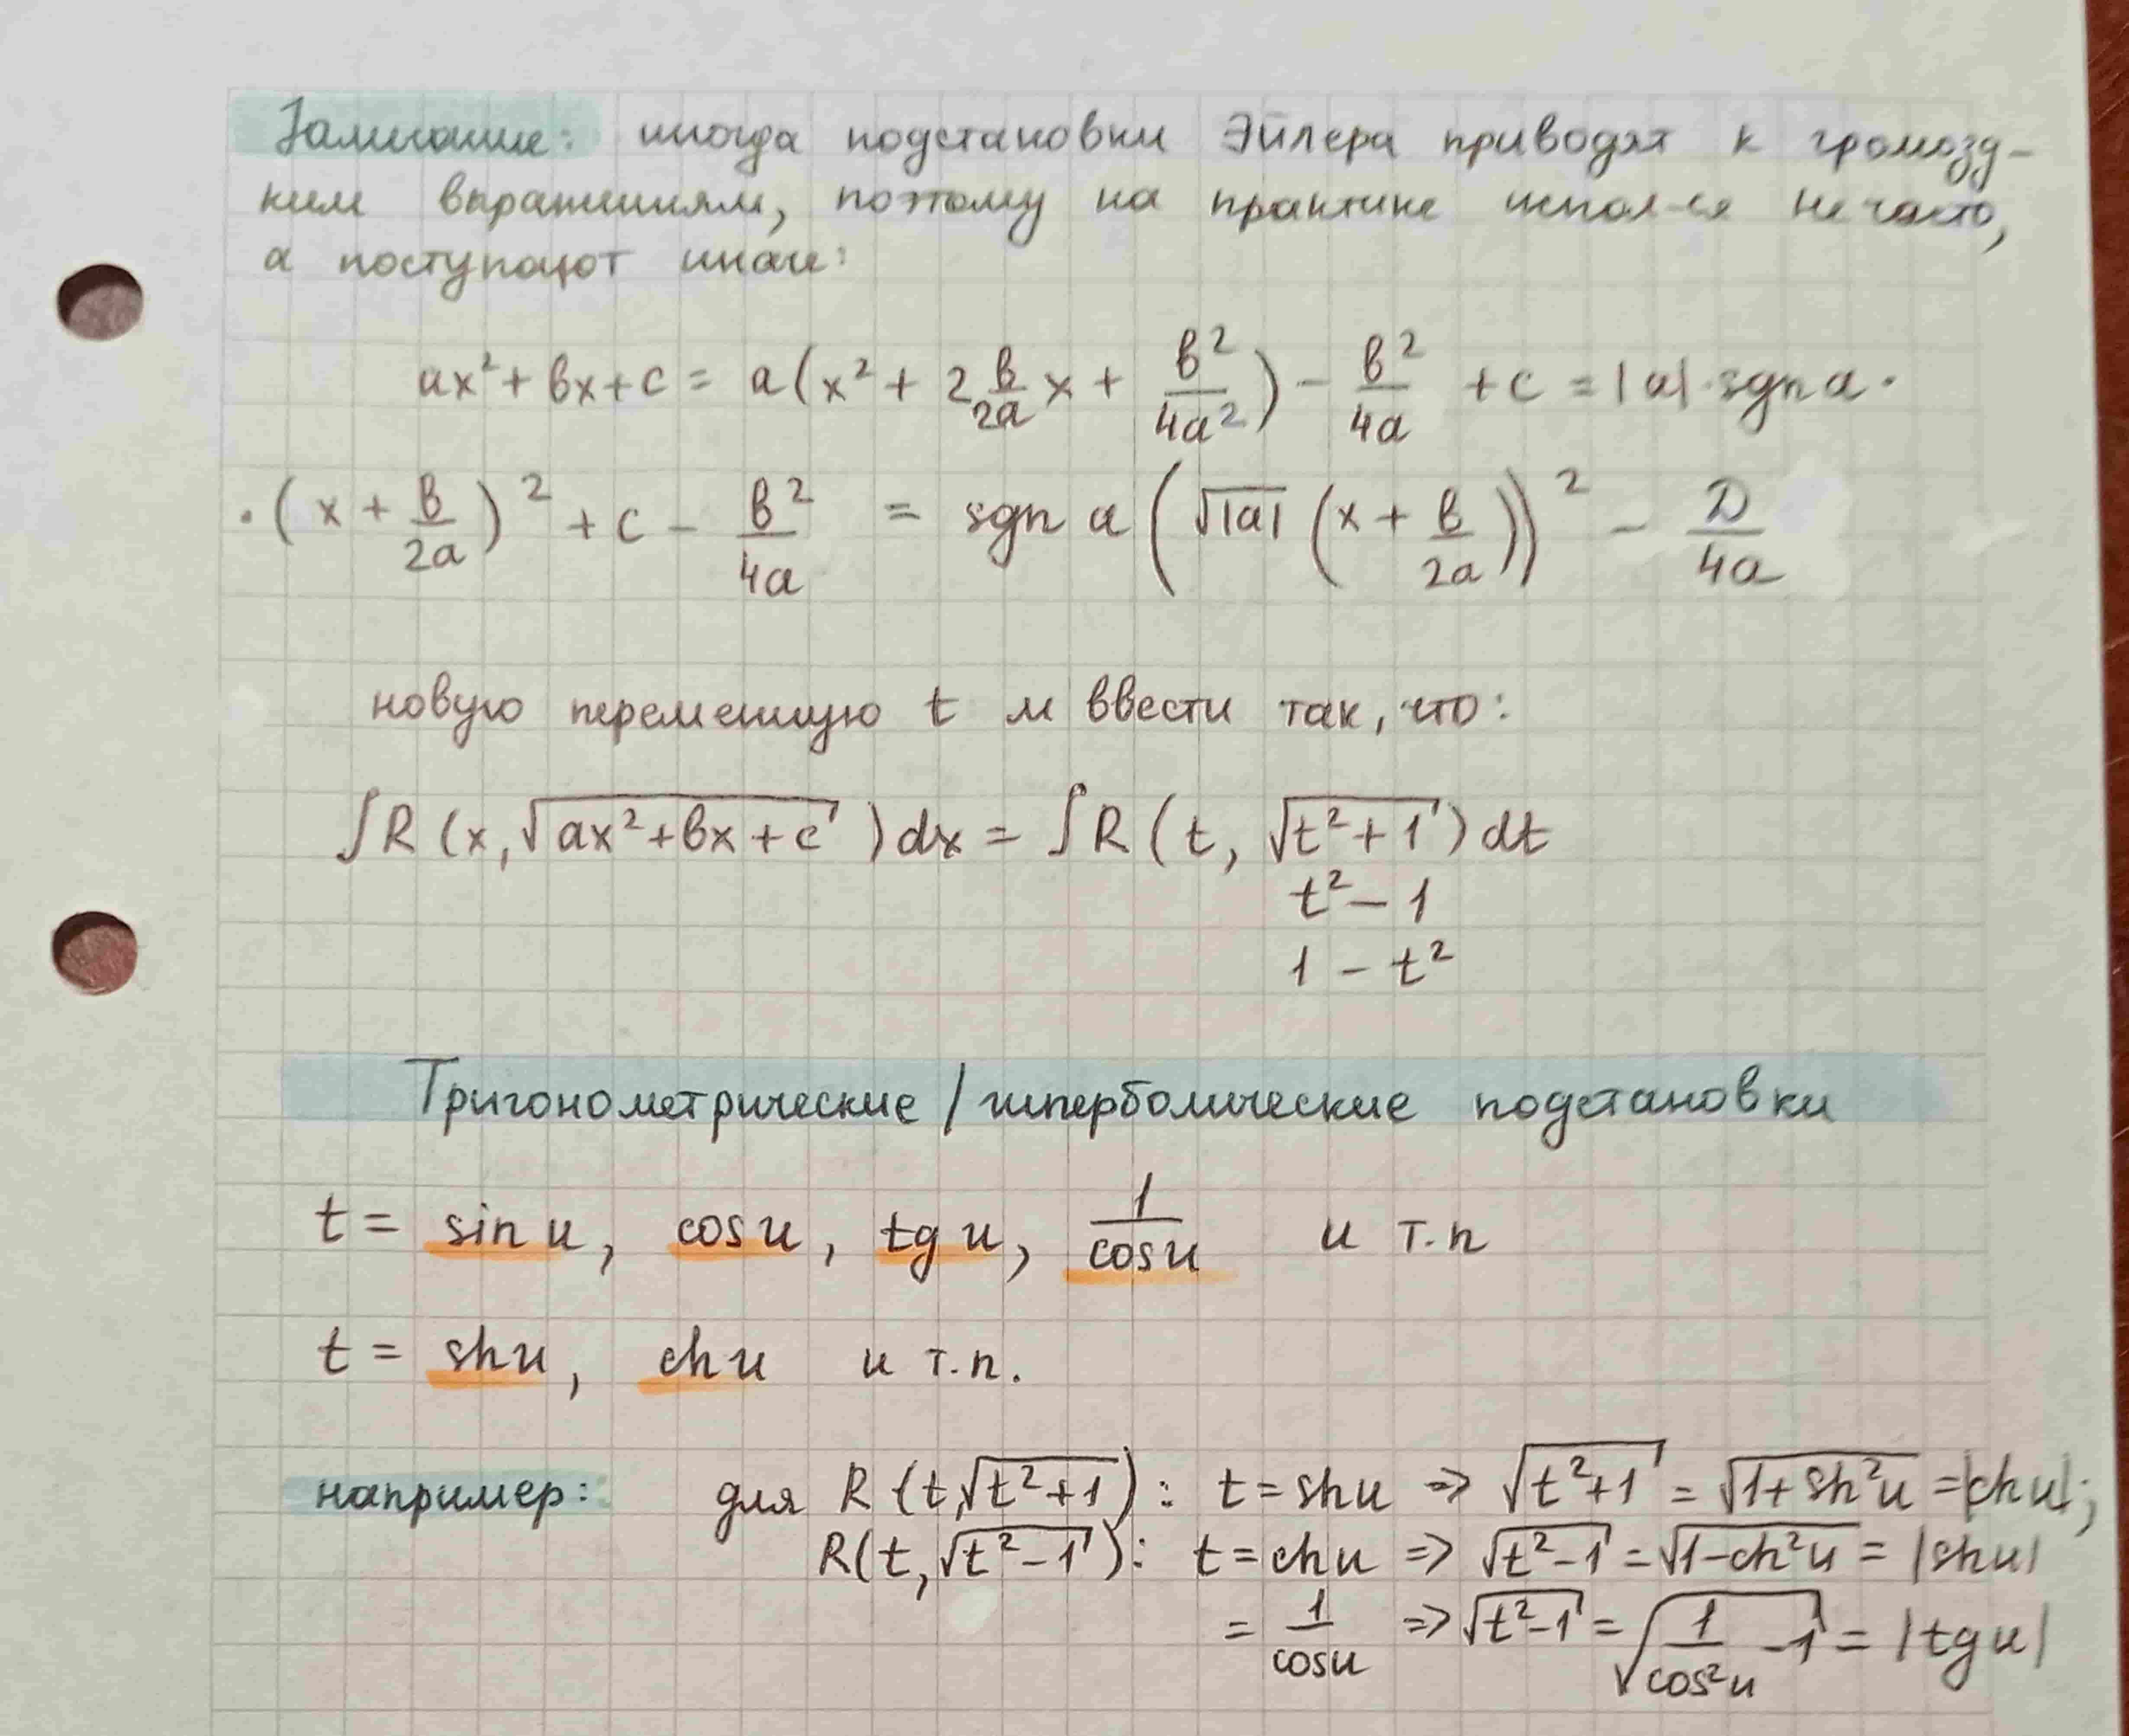 Замечание: иногда подстановки Эйлера приводят к громозд-
ким выражениям, поэтому на практике испол-ся не часто,
а поступают иначе:
ax² + bx + c = a(x² + 2 b/2a x + b²/4a²) - b²/4a + c = |a| · sgn a ·
· (x + b/2a)² + c - b²/4a = sgn a (√|a| (x + b/2a))² - D/4a
новую переменную t м ввести так, что:
∫R (x, √(ax² + bx + c)) dx = ∫R (t, √(t² + 1)) dt
t² - 1
1 - t²
Тригонометрические / гиперболические подстановки
t = sin u, cos u, tg u, 1/cos u и т.п
t = sh u, ch u и т.п.
например: для R (t, √(t² + 1)): t = sh u => √(t² + 1) = √(1 + sh²u) = |ch u|;
R(t, √(t² - 1)): t = ch u => √(t² - 1) = √(1 - ch²u) = |sh u|
= 1/cos u => √(t² - 1) = √(1/cos²u - 1) = |tg u|